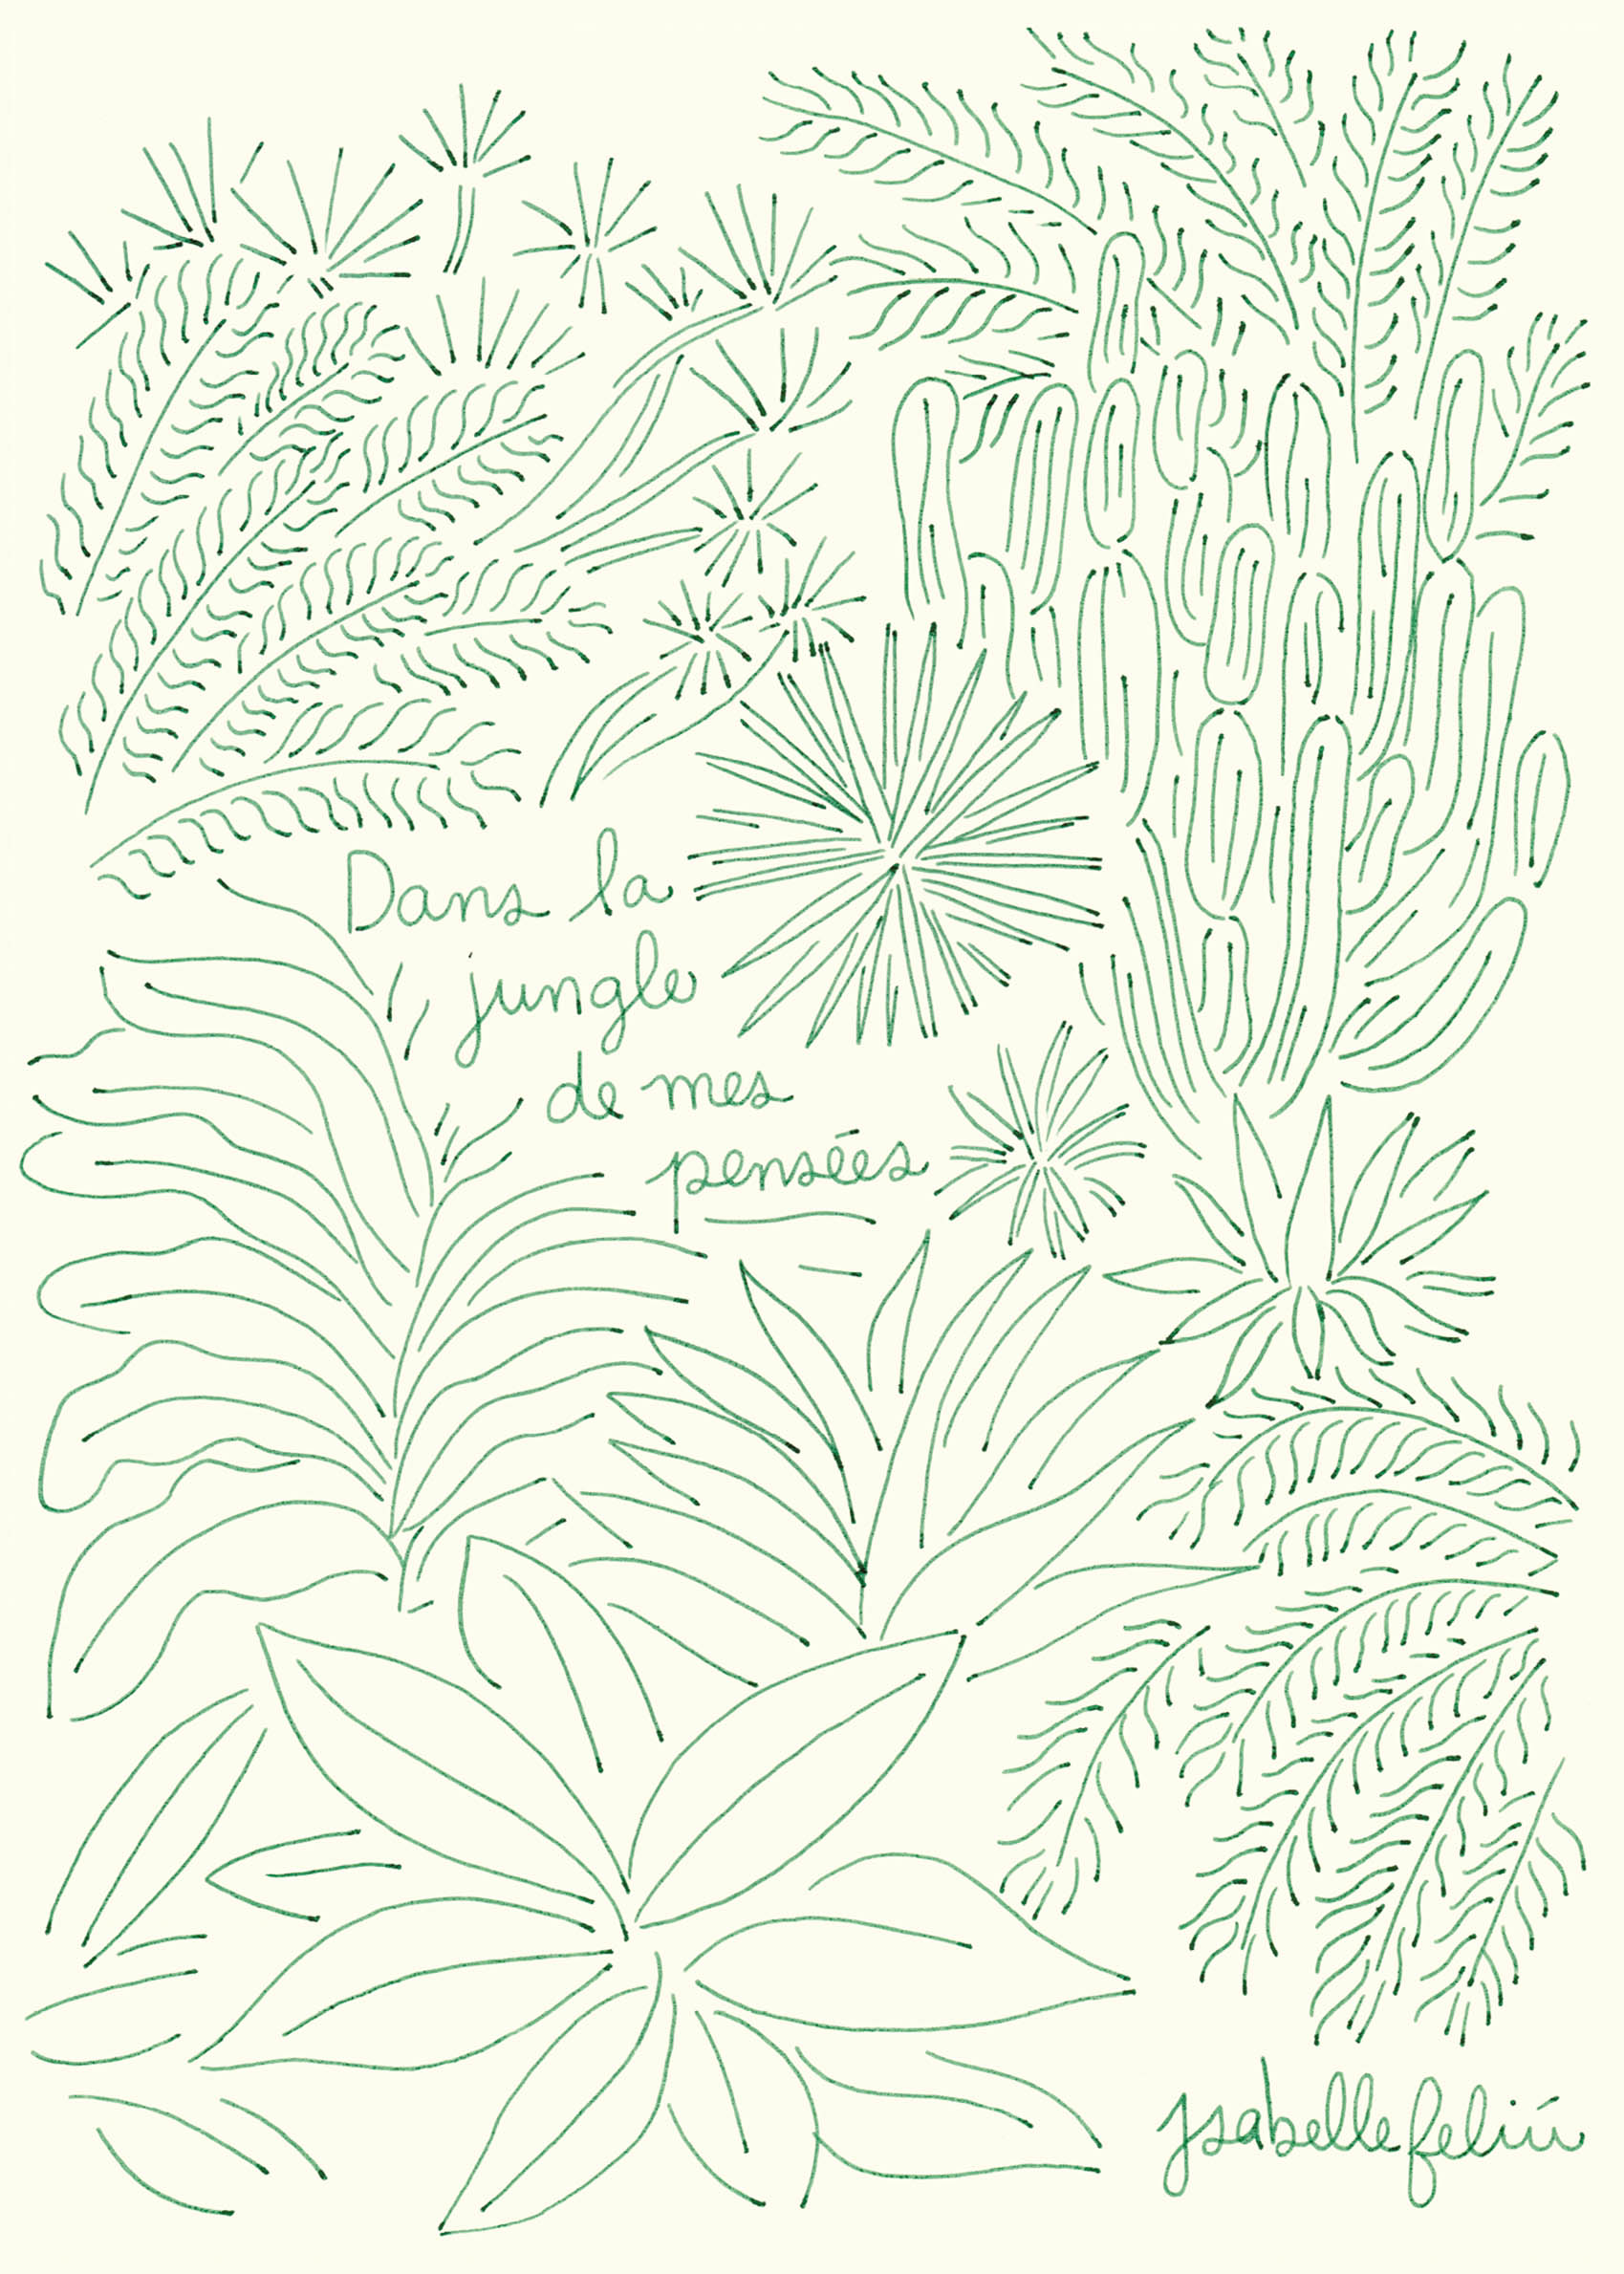 Dans la
jungle
de mes
pensées
ysabellefeliú